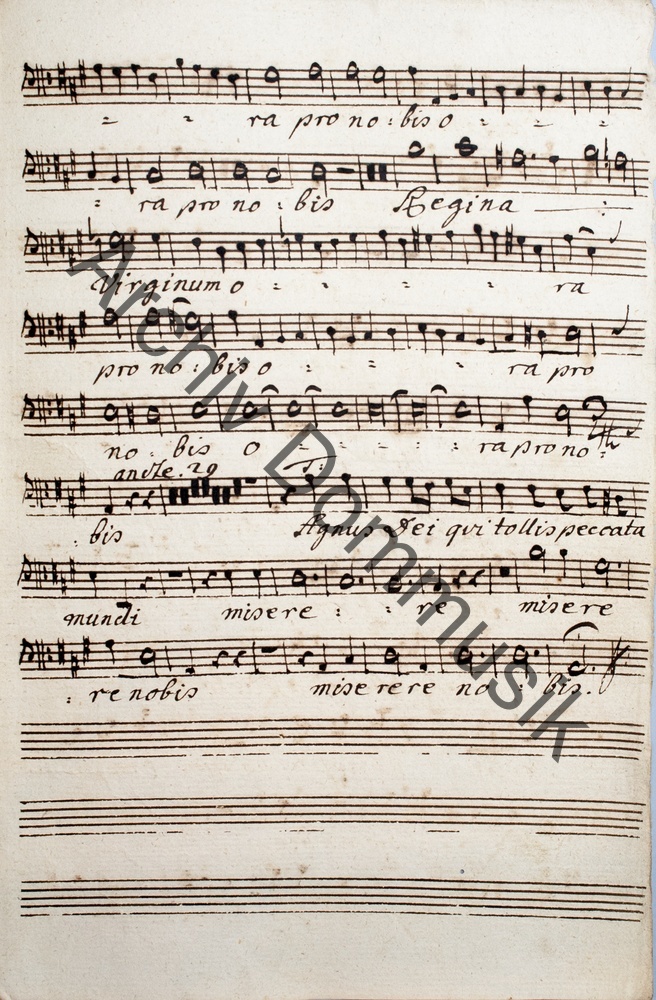 ra pro no : bis o
ra pro no : bis Regina
Virginum o ra
pro no : bis o ra pro
no : bis o ra pro no :
29
bis Agnus Dei qui tollis peccata
mundi misere : : re misere
: re nobis miserere no : bis.
Archiv Dommusik